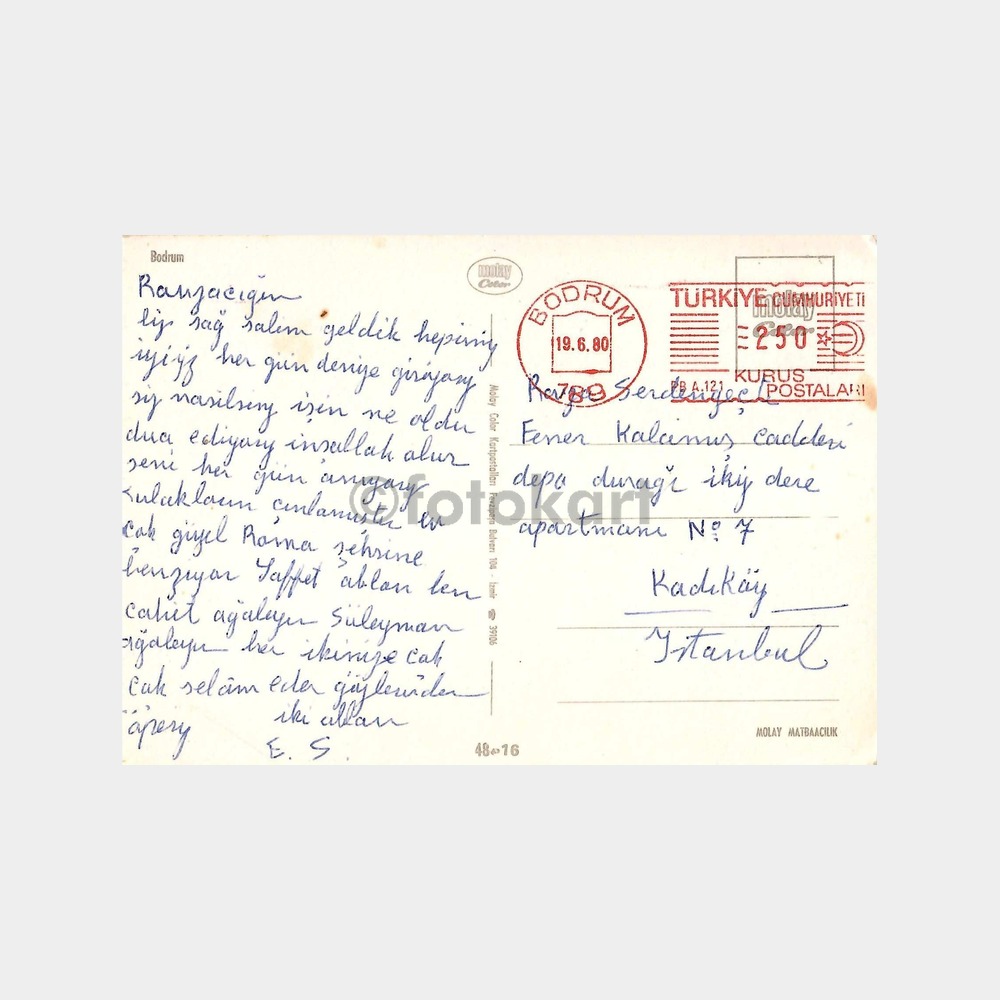 Bodrum
molay
Color
Ranzacığım
biz sağ salim geldik hepimiz
iyiyiz her gün denize giriyoruz
siz nasılsınız işin ne oldu
dua ediyoruz inşallah olur
seni her gün anıyoruz
kulakların çınlamıştır ev
çok güzel Roma şehrine
benziyor Saffet ablan ben
Cahit ağabeyin Süleyman
ağabeyin her ikinize çok
çok selâm eder gözlerinden
öperiz
iki ablan
E. S.
Molay Color Kartpostalları Fevzipaşa Bulvarı 104 - İzmir ☎ 39106
48∞16
BODRUM
19.6.80
789
TÜRKİYE CUMHURİYETİ
250
KURUŞ
PB A.121
POSTALARI
molay
Color
Serdengeçti
Fener Kalamış caddesi
depo durağı iki dere
apartmanı No 7
Kadıköy
İstanbul
MOLAY MATBAACILIK
©fotokart